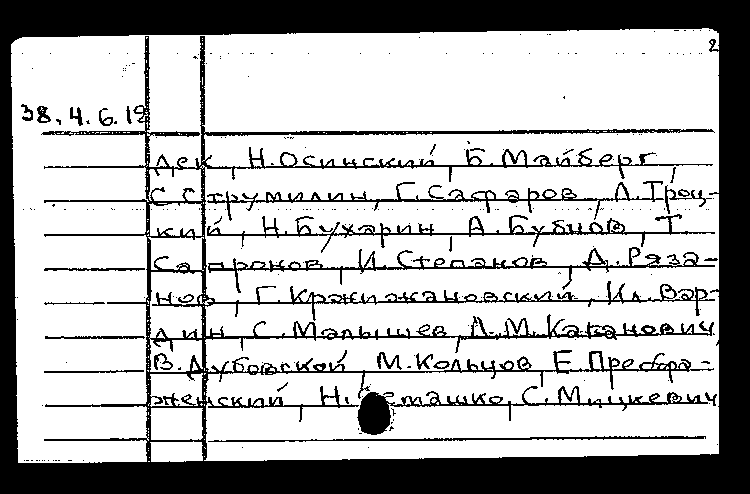 2
38.4.6.12
дек, Н.Осинский, Б.Майберг,
С.Струмилин, Г.Сафаров, Л.Троц-
кий, Н.Бухарин, А.Бубнов, Т.
Сапронов, И.Степанов, Д.Ряза-
нов, Г.Кржижановский, Ил.Вар-
дин, С.Малышев, Л.М.Каганович,
В.Дубовской, М.Кольцов, Е.Преобра-
женский, Н. С.Мицкевич